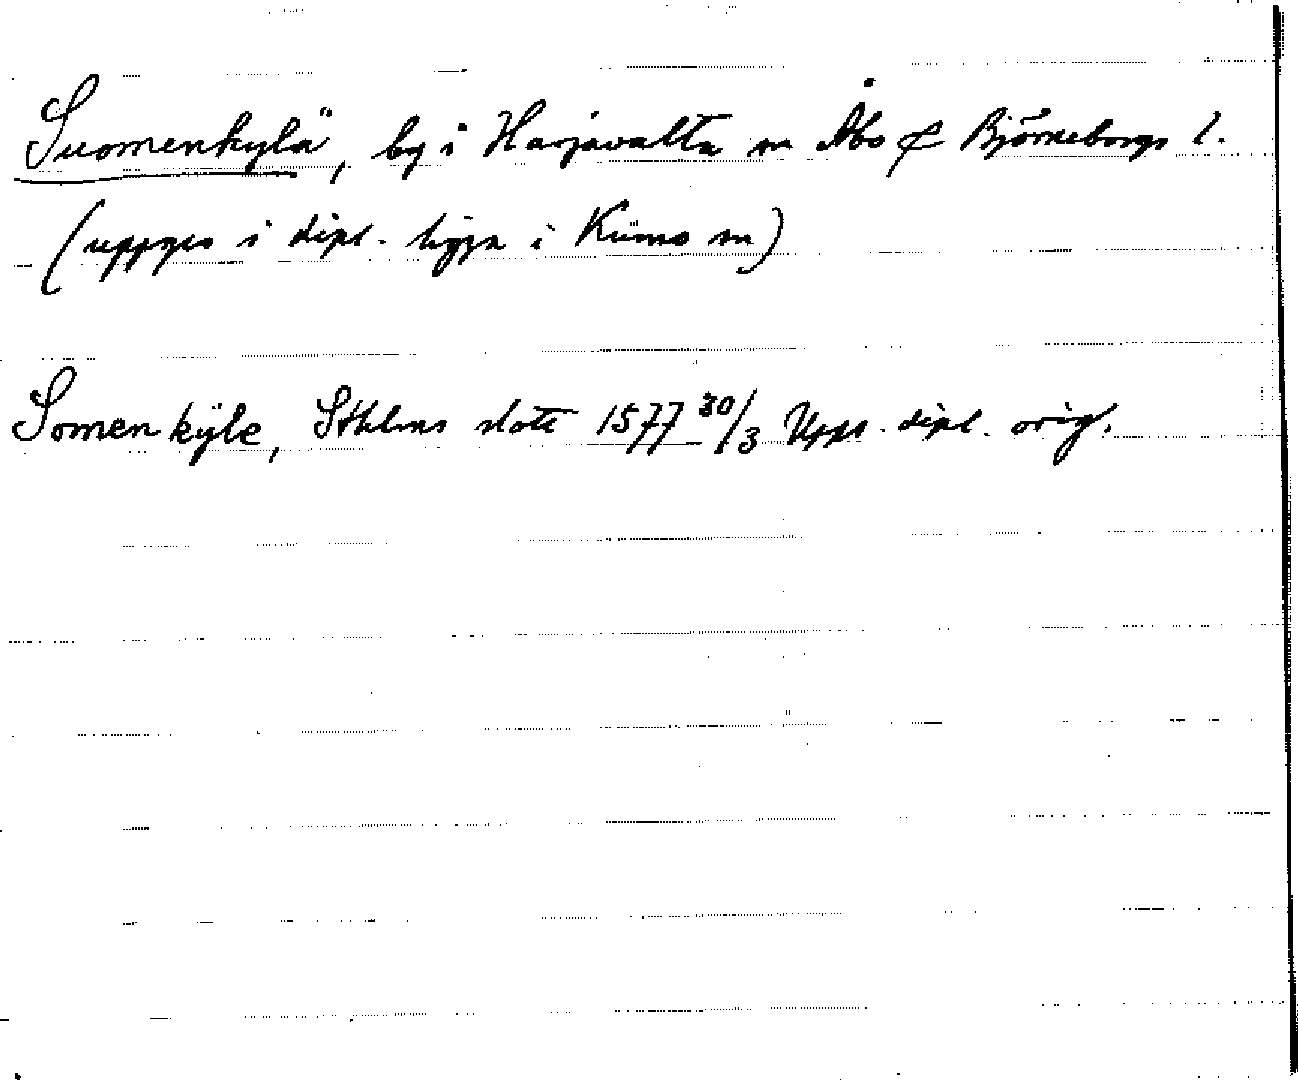 Suomenkylä, by i Harjavalta sn Åbo & Björneborgs l.
(uppges i dipl. ligga i Kumo sn)
Somenkÿle, Sthlms slott 1577 30/3 Upps. dipl. orig.